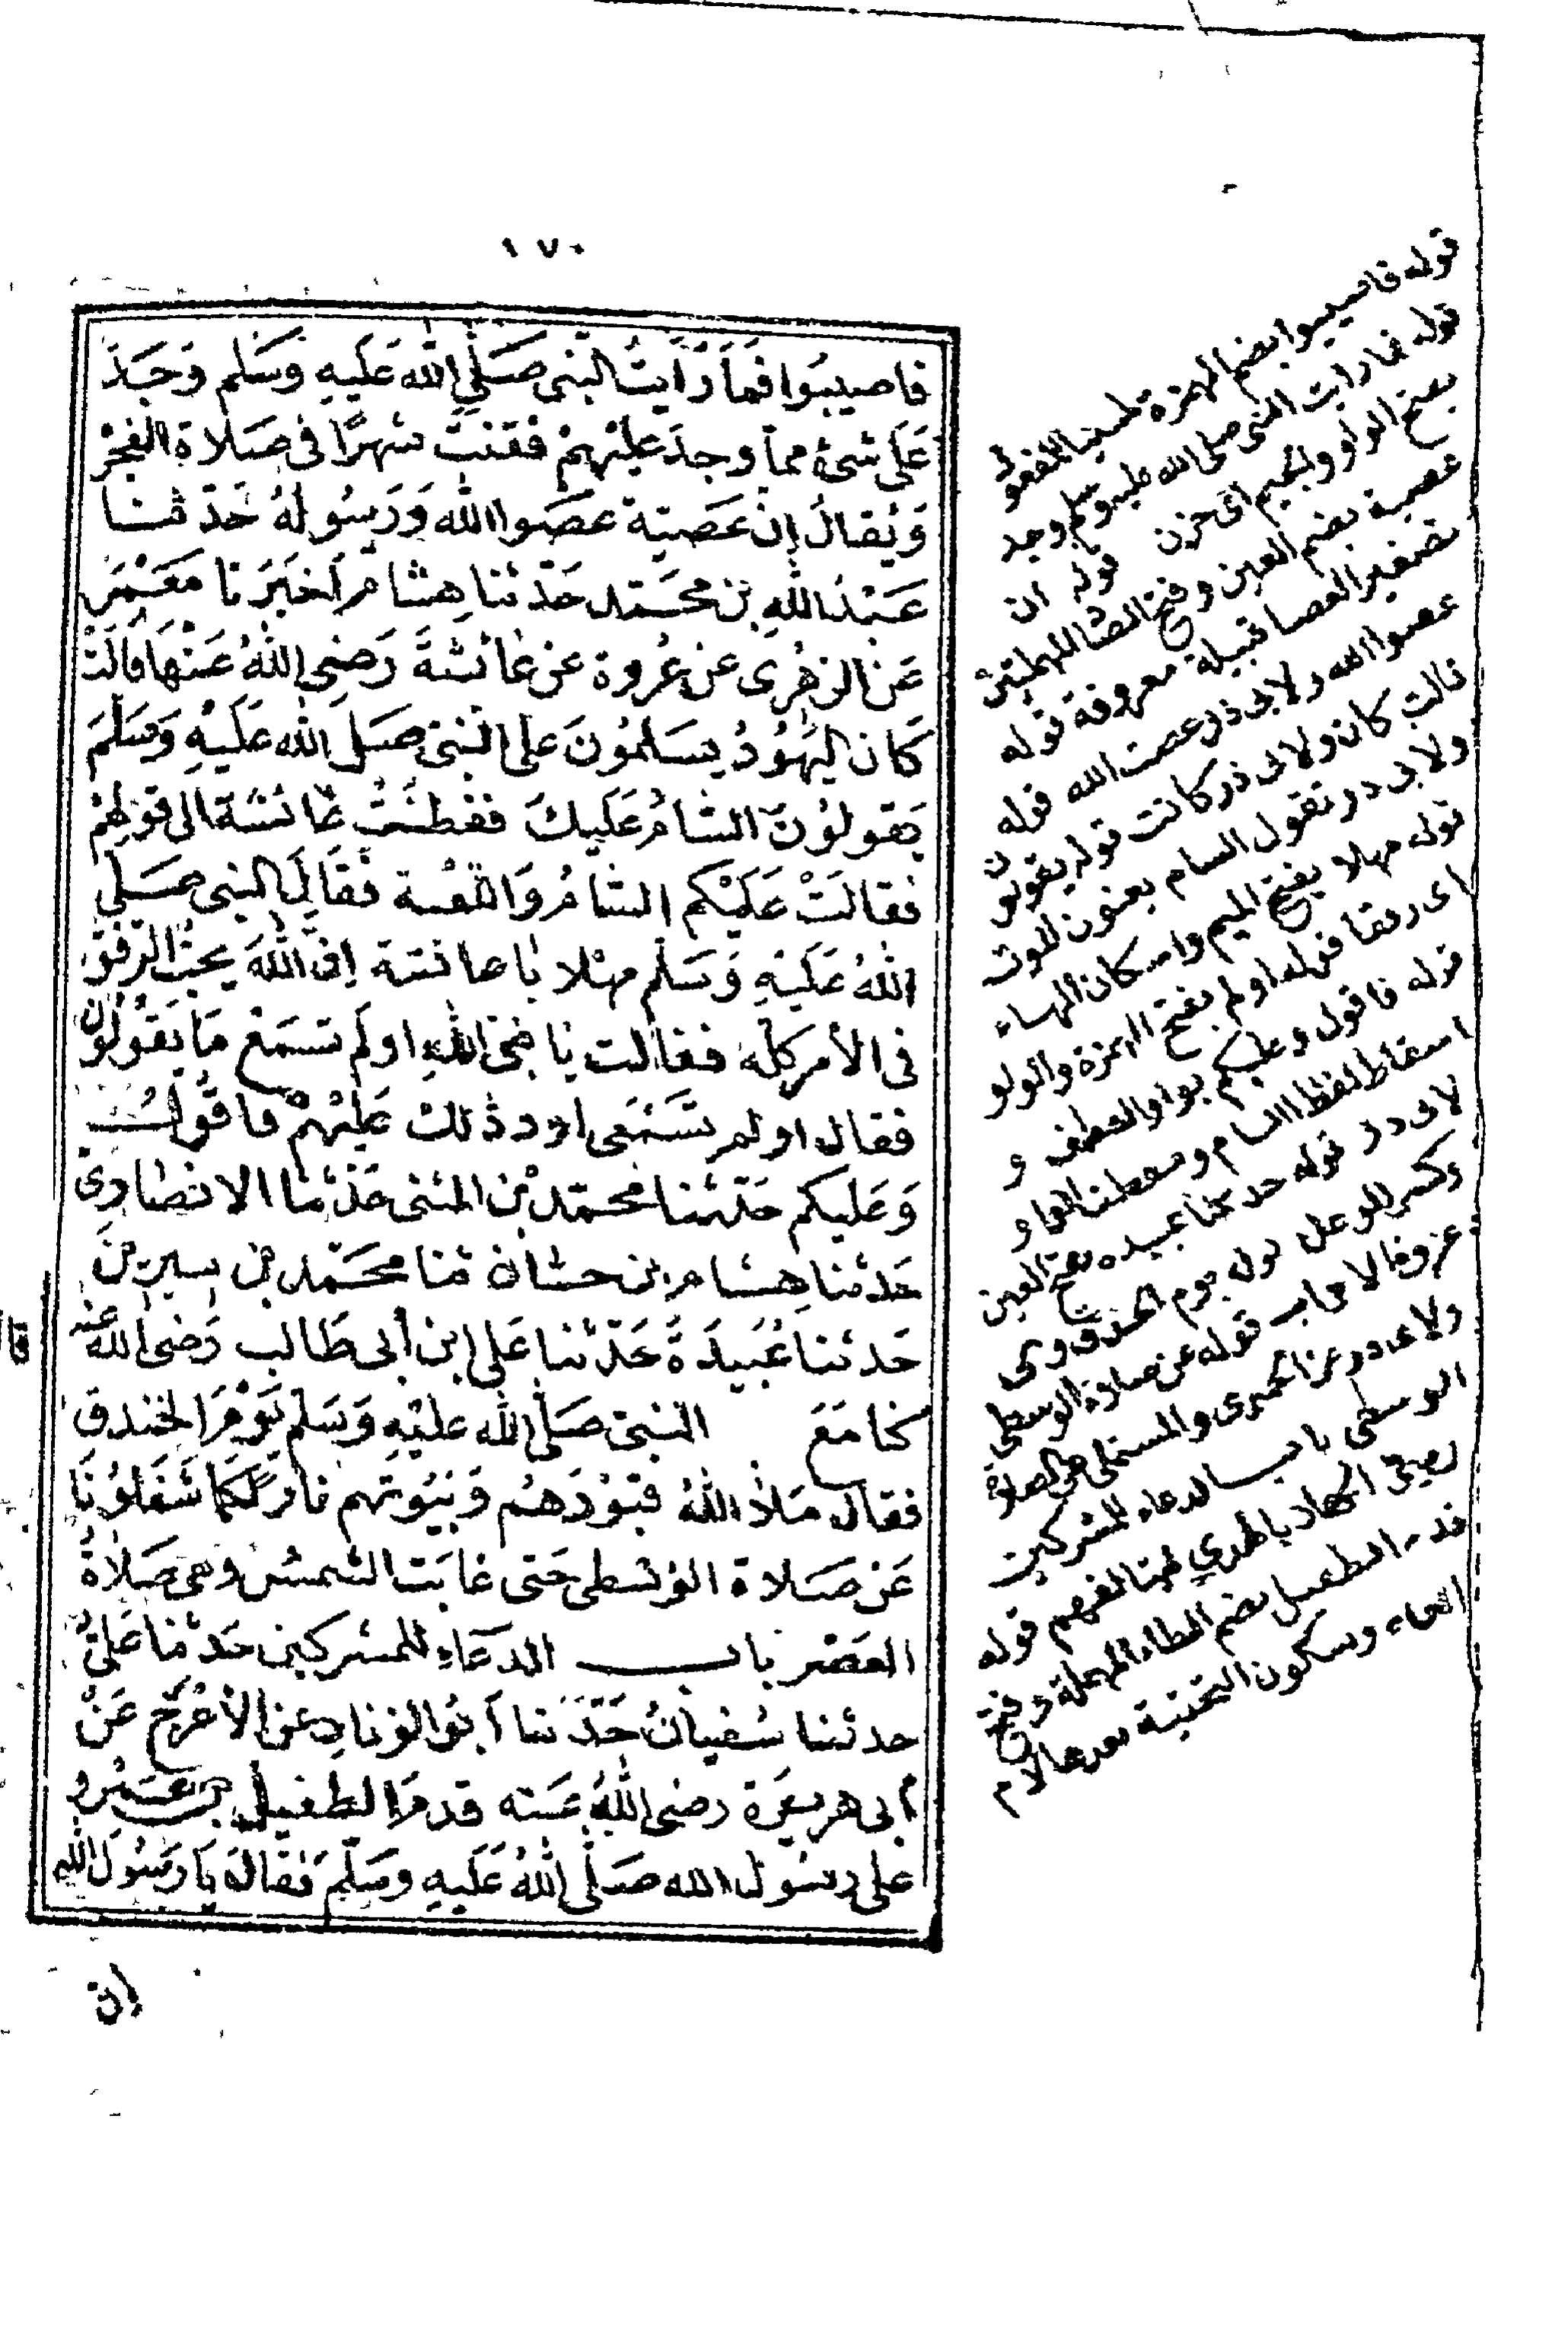 ١٧٠
فاصيبوا فما رأيت النبى صلى الله عليه وسلم وجد
على شئ مما وجد عليهم فقنت شهرا فى صلاة الفجر
ويقال ان عصية عصوا الله ورسوله حدثنا
عبد الله بن محمد حدثنا هشام أخبرنا معمر
عن الزهرى عن عروة عن عائشة رضى الله عنها قالت
كان اليهود يسلمون على النبى صلى الله عليه وسلم
يقولون السام عليك ففطنت عائشة الى قولهم
فقالت عليكم السام واللعنة فقال النبى صلى
الله عليه وسلم مهلا يا عائشة ان الله يحب الرفق
فى الأمر كله فقالت يا نبى الله اولم تسمع ما يقولون
فقال اولم تسمعى ارد ذلك عليهم فاقول
وعليكم حدثنا محمد بن المثنى حدثنا الانصارى
حدثنا هشام بن حسان ثنا محمد بن سيرين
حدثنا عبيدة حدثنا على ابن أبى طالب رضى الله عنه
كنا مع النبى صلى الله عليه وسلم يوم الخندق
فقال ملأ الله قبورهم وبيوتهم نارا كما شغلونا
عن صلاة الوسطى حتى غابت الشمس وهى صلاة
العصر باب الدعاء للمشركين حدثنا على
حدثنا سفيان حدثنا أبو الزناد عن الأعرج عن
أبى هريرة رضى الله عنه قدم الطفيل بن عمرو
على رسول الله صلى الله عليه وسلم فقال يا رسول الله
ان
قوله فاصيبوا بضم الهمزة مبنيا للمفعول
قوله فما رايت النبى صلى الله عليه وسلم وجد
بفتح الواو والجيم اى حزن قوله ان
عصية بضم العين وفتح الصاد المهملتين
تصغير العصا قبيلة معروفة قوله
عصوا الله ولابى ذر عصت الله قوله
قالت كان ولابى ذر كانت قوله يقولون
ولابى ذر تقول السام يعنون الموت
قوله مهلا بفتح الميم واسكان الهاء
اى رفقا قوله اولم بفتح الهمزة والواو
قوله فاقول وعليكم بواو العطف و
اسقاط لفظ السام وسقطت الواو
لابى ذر قوله حدثنا عبيدة بفتح العين
وكسر الموحدة قوله يوم الخندق وهى
غزوة الاحزاب قوله عن صلاة الوسطى
ولابى ذر عن الحموى والمستملى عن الصلاة
الوسطى باب الدعاء للمشركين
قوله
قدم الطفيل بضم الطاء المهملة وفتح
الفاء وسكون التحتية بعدها لام
قا